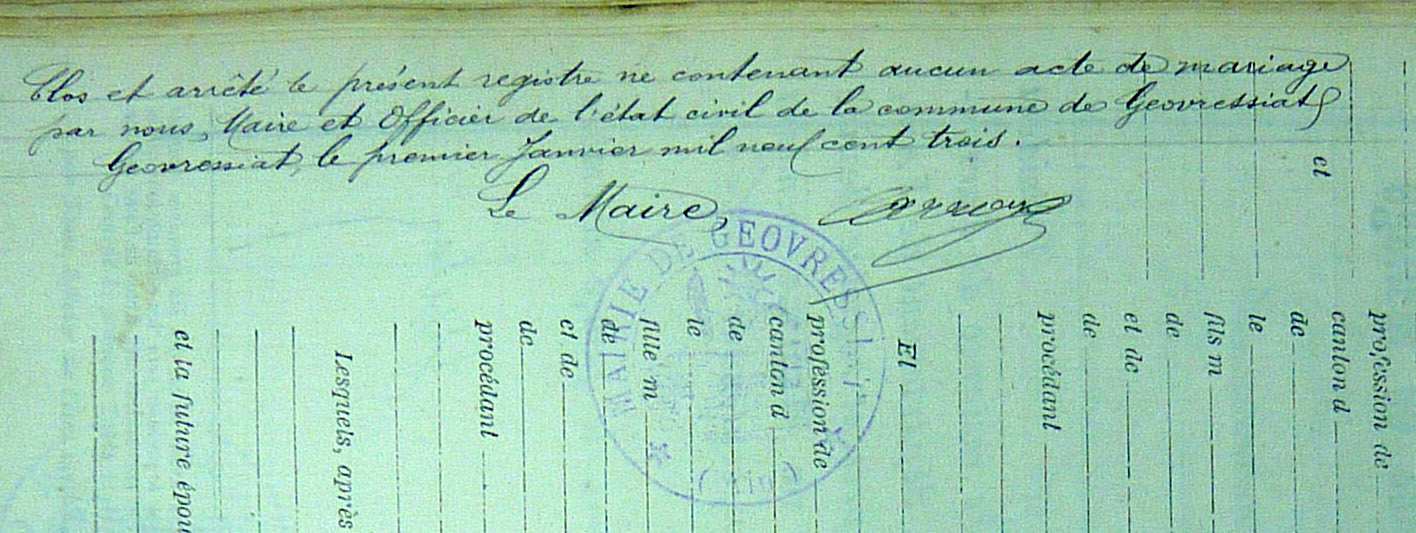 Clos et arrêté le présent registre ne contenant aucun acte de mariage
par nous, Maire et Officier de l'état civil de la commune de Geovressiat
Geovressiat, le premier Janvier mil neuf cent trois.
Le Maire,
MAIRIE DE GEOVRESSIAT
(Ain)
profession de
canton d
de
le
fils m
de
et de
de
procédant
et
Et
profession de
canton d
de
le
fille m
de
et de
de
procédant
Lesquels, après
et la future épou